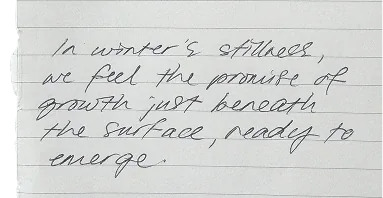 In winter's stillness,
we feel the promise of
growth just beneath
the surface, ready to
emerge.